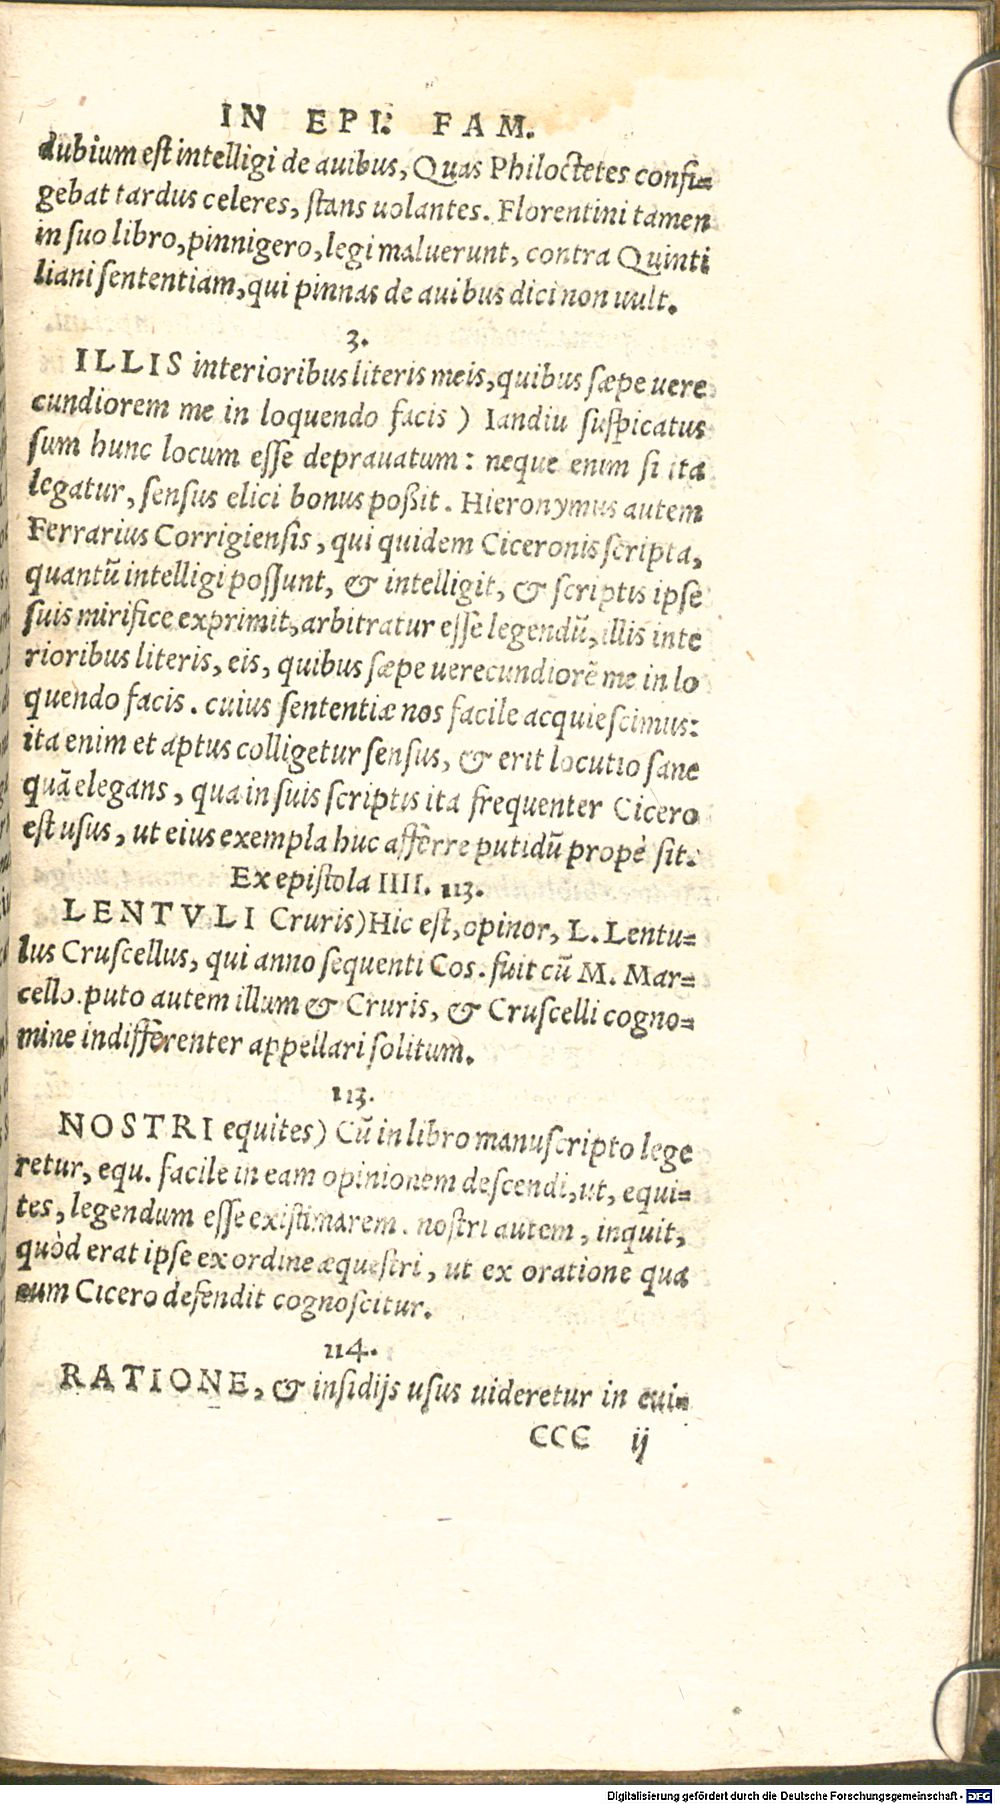 IN EPI. FAM.
dubium est intelligi de auibus, Quas Philoctetes confi=
gebat tardus celeres, stans uolantes. Florentini tamen
in suo libro, pinnigero, legi maluerunt, contra Quinti
liani sententiam, qui pinnas de auibus dici non uult.
3.
ILLIS interioribus literis meis, quibus sæpe uere
cundiorem me in loquendo facis) Iandiu suspicatus
sum hunc locum esse deprauatum: neque enim si ita
legatur, sensus elici bonus poßit. Hieronymus autem
Ferrarius Corrigiensis, qui quidem Ciceronis scripta,
quantũ intelligi possunt, & intelligit, & scriptis ipse
suis mirifice exprimit, arbitratur esse legendũ, illis inte
rioribus literis, eis, quibus sæpe uerecundiorẽ me in lo
quendo facis. cuius sententiæ nos facile acquiescimus:
ita enim et aptus colligetur sensus, & erit locutio sane
quã elegans, qua in suis scriptis ita frequenter Cicero
est usus, ut eius exempla huc afferre putidũ propè sit.
Ex epistola IIII. 113.
LENTVLI Cruris) Hic est, opinor, L. Lentu=
lus Cruscellus, qui anno sequenti Cos. fuit cũ M. Mar=
cello. puto autem illum & Cruris, & Cruscelli cogno=
mine indifferenter appellari solitum.
113.
NOSTRI equites) Cũ in libro manuscripto lege
retur, equ. facile in eam opinionem descendi, ut, equi=
tes, legendum esse existimarem. nostri autem, inquit,
quòd erat ipse ex ordine æquestri, ut ex oratione qua
eum Cicero defendit cognoscitur.
114.
RATIONE, & insidijs usus uideretur in eui=
CCC ij
Digitalisierung gefördert durch die Deutsche Forschungsgemeinschaft - DFG